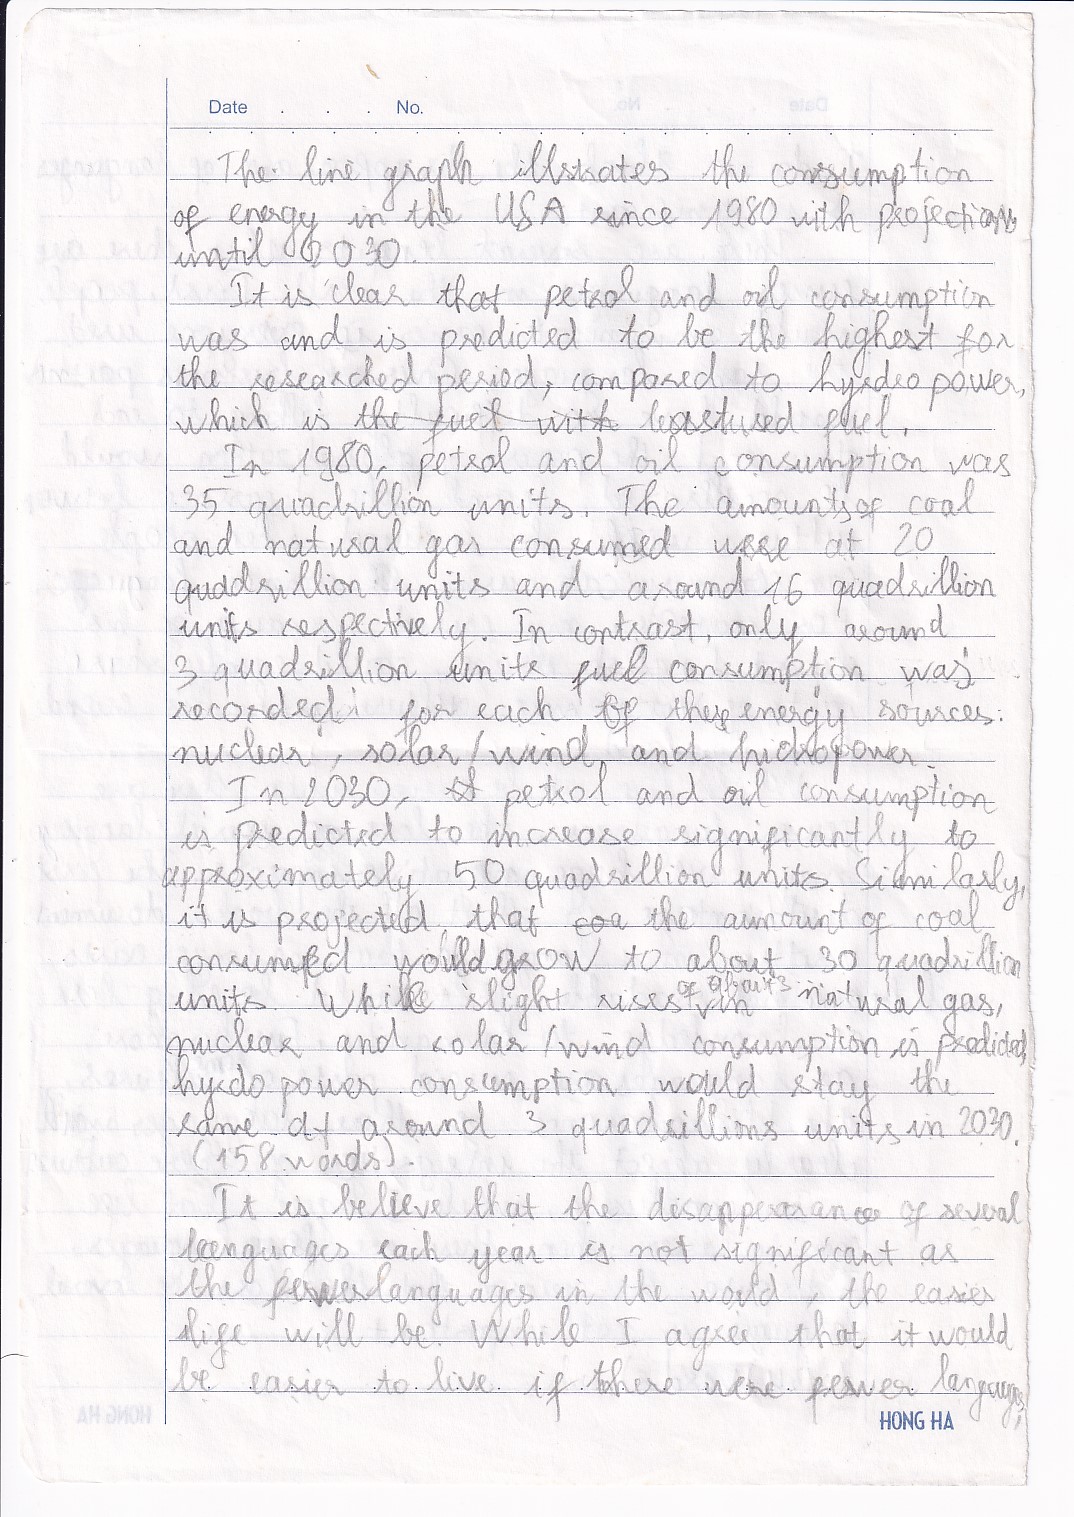 Date . . . No.
The line graph illstrates the consumption
of energy in the USA since 1980 with projections
until 2030.
It is clear that petrol and oil consumption
was and is predicted to be the highest for
the researched period, compared to hyrdro power,
which is the fuel with least used fuel.
In 1980, petrol and oil consumption was
35 quadrillion units. The amounts of coal
and natural gas consumed were at 20
quadrillion units and around 16 quadrillion
units respectively. In contrast, only around
3 quadrillion units fuel consumption was
recorded for each of these energy sources:
nuclear, solar/wind and hidropower.
In 2030, petrol and oil consumption
is predicted to increase significantly to
approximately 50 quadrillion units. Siamilarly,
it is projected that coa the amount of coal
consumed would grow to about 30 quadrillion
units. While slight rises of units in natural gas,
nuclear and solar/wind consumption is predicted,
hyrdo power consumption would stay the
same at around 3 quadrillions units in 2030.
(158 words).
It is believe that the disappearance of several
languages each year is not significant as
the fewer languages in the world, the easier
life will be. While I agree that it would
be easier to live if there were fewer languages,
HONG HA